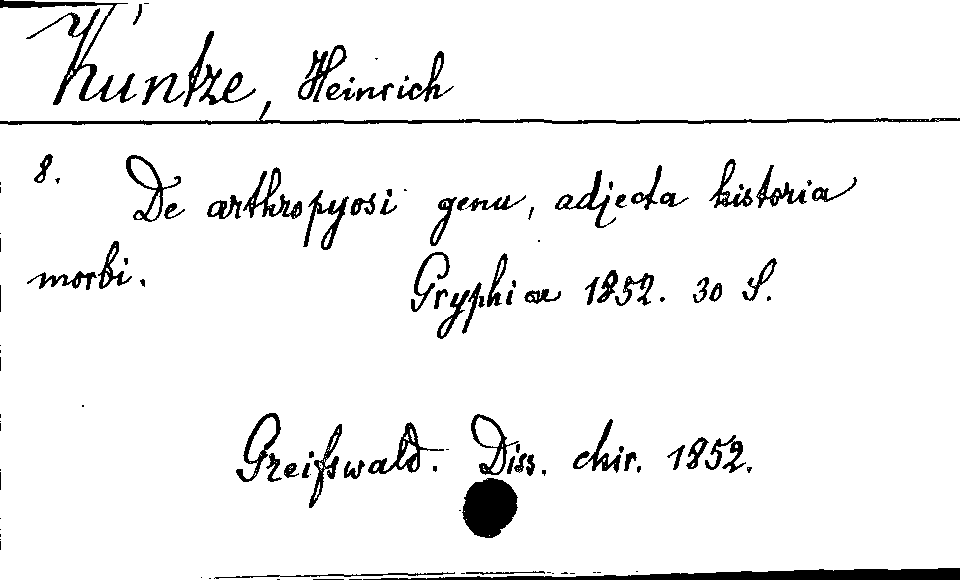 Kuntze, Heinrich
8. De arthropyosi genu, adjecta historia
morbi. Gryphiae 1852. 30 S.
Greifswald. Diss. chir. 1852.